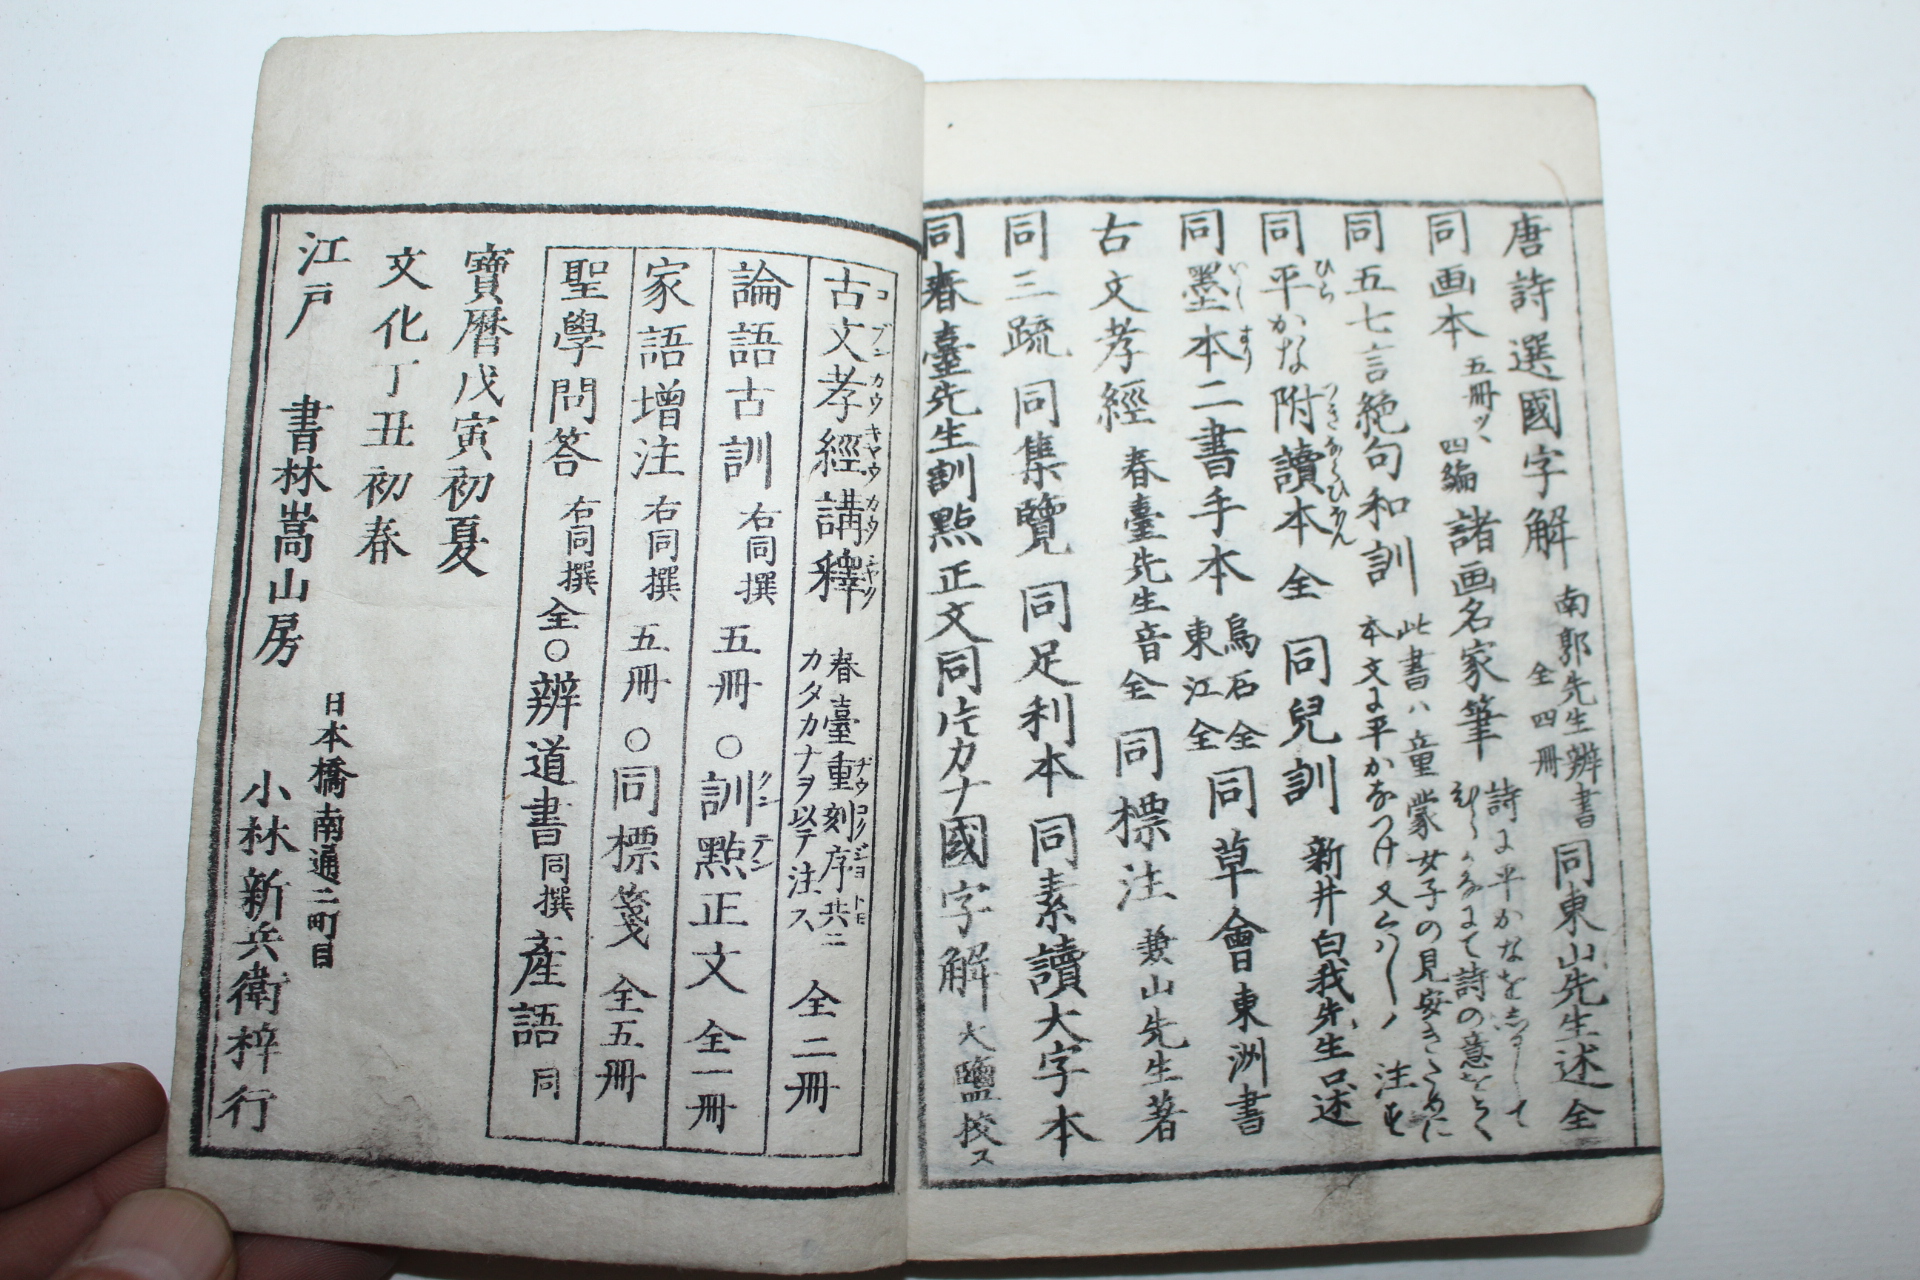 唐詩選國字解 南郭先生辨書 全四冊 同東山先生述 全
同画本 五冊ツヽ 四編 諸画名家筆 詩に平かなを志るして
同五七言絶句和訓 此書ハ童蒙女子の見安きために
本文に平かなつけ又くハしく注す
同平かな附讀本 全 同兒訓 新井白我先生口述
同墨本二書手本 烏石 全 東江 全 同草會東洲書
古文孝經 春臺先生音 全 同標注 兼山先生著
同三疏 同集覽 同足利本 同素讀大字本
同春臺先生訓點正文 同片カナ國字解 大鹽校ス
古文孝經講釋 春臺重刻序共ニ カタカナヲ以テ注ス 全二冊
コブンカウキヤウカウシヤク
論語古訓 右同撰 五冊 ○訓點正文 全一冊
家語增注 右同撰 五冊 ○同標箋 全五冊
聖學問答 右同撰 全 ○辨道書 同撰 產語 同
寶曆戊寅初夏
文化丁丑初春
日本橋南通二町目
江戸 書林嵩山房 小林新兵衞梓行